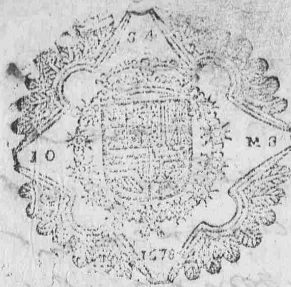 S 4
10 MS
1678